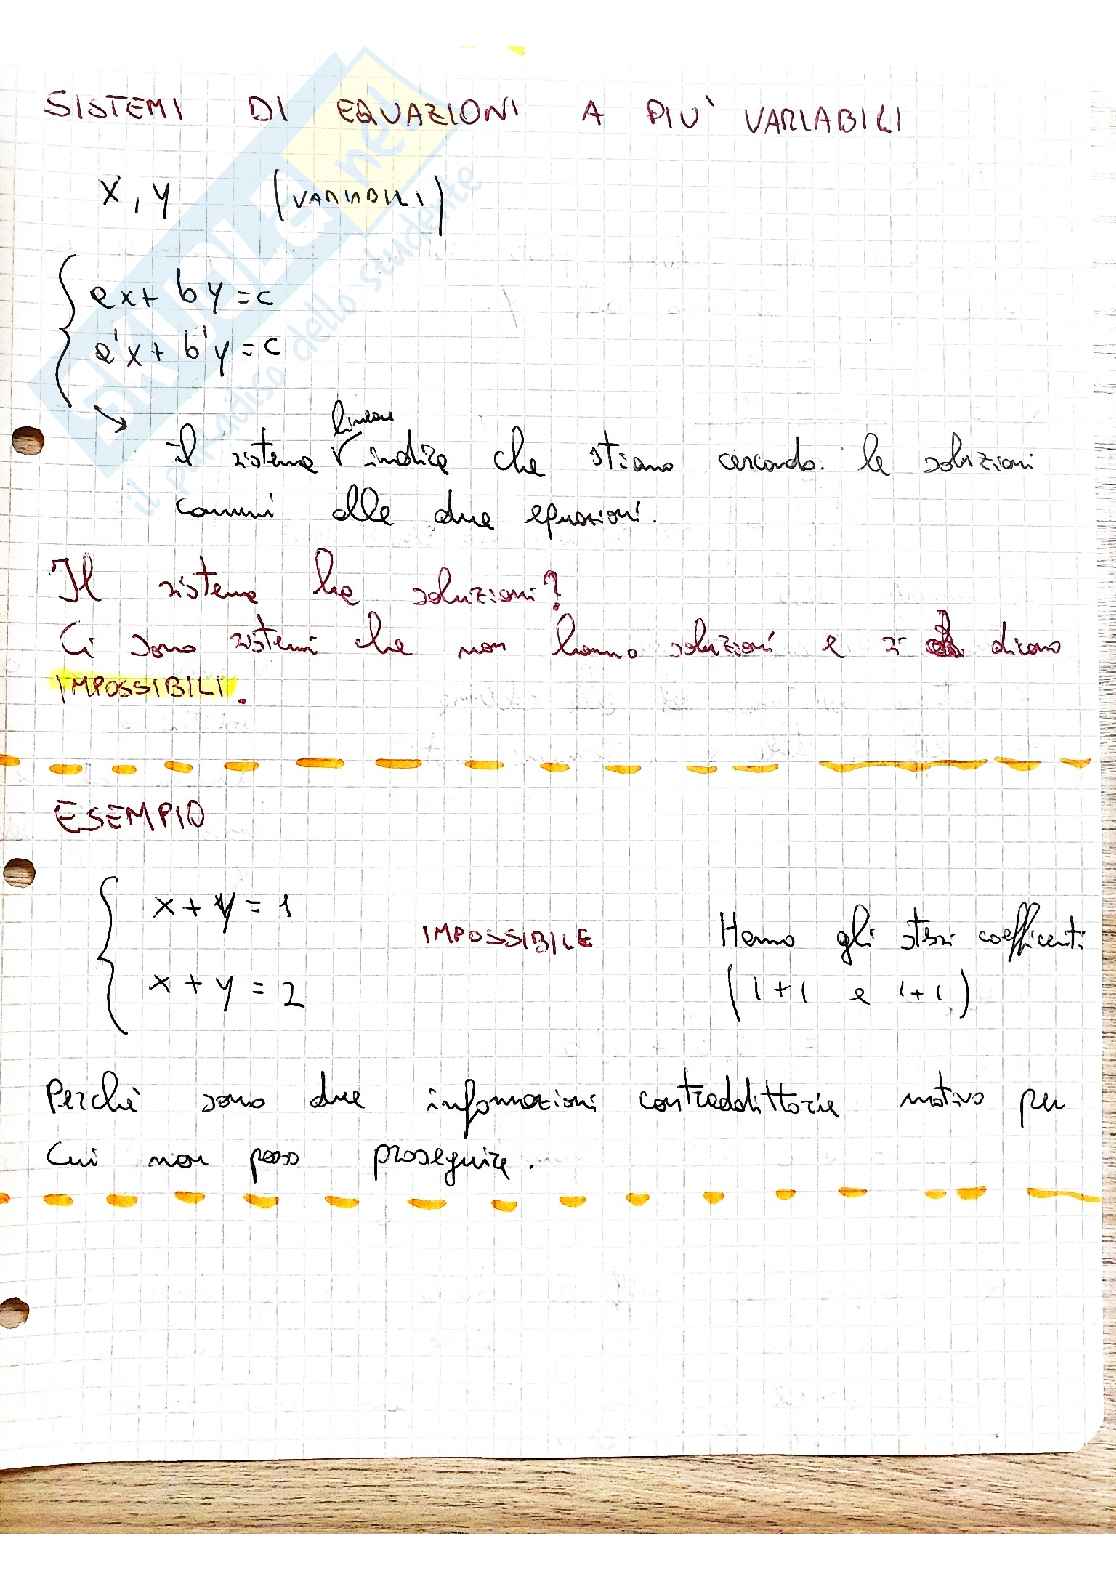 SISTEMI DI EQUAZIONI A PIU' VARIABILI
x, y (VARIABILI)
ax + by = c
a'x + b'y = c
lineare
il sistema indica che stiamo cercando le soluzioni
comuni alle due equazioni.
Il sistema ha soluzioni?
Ci sono sistemi che non hanno soluzioni e si dicono
IMPOSSIBILI.
ESEMPIO
x + y = 1
IMPOSSIBILE
Hanno gli stessi coefficenti
x + y = 2
(1+1 e 1+1)
Perchè sono due informazioni contraddittorie motivo per
cui non posso proseguire.
SKUOLA.net
il paradiso dello studente